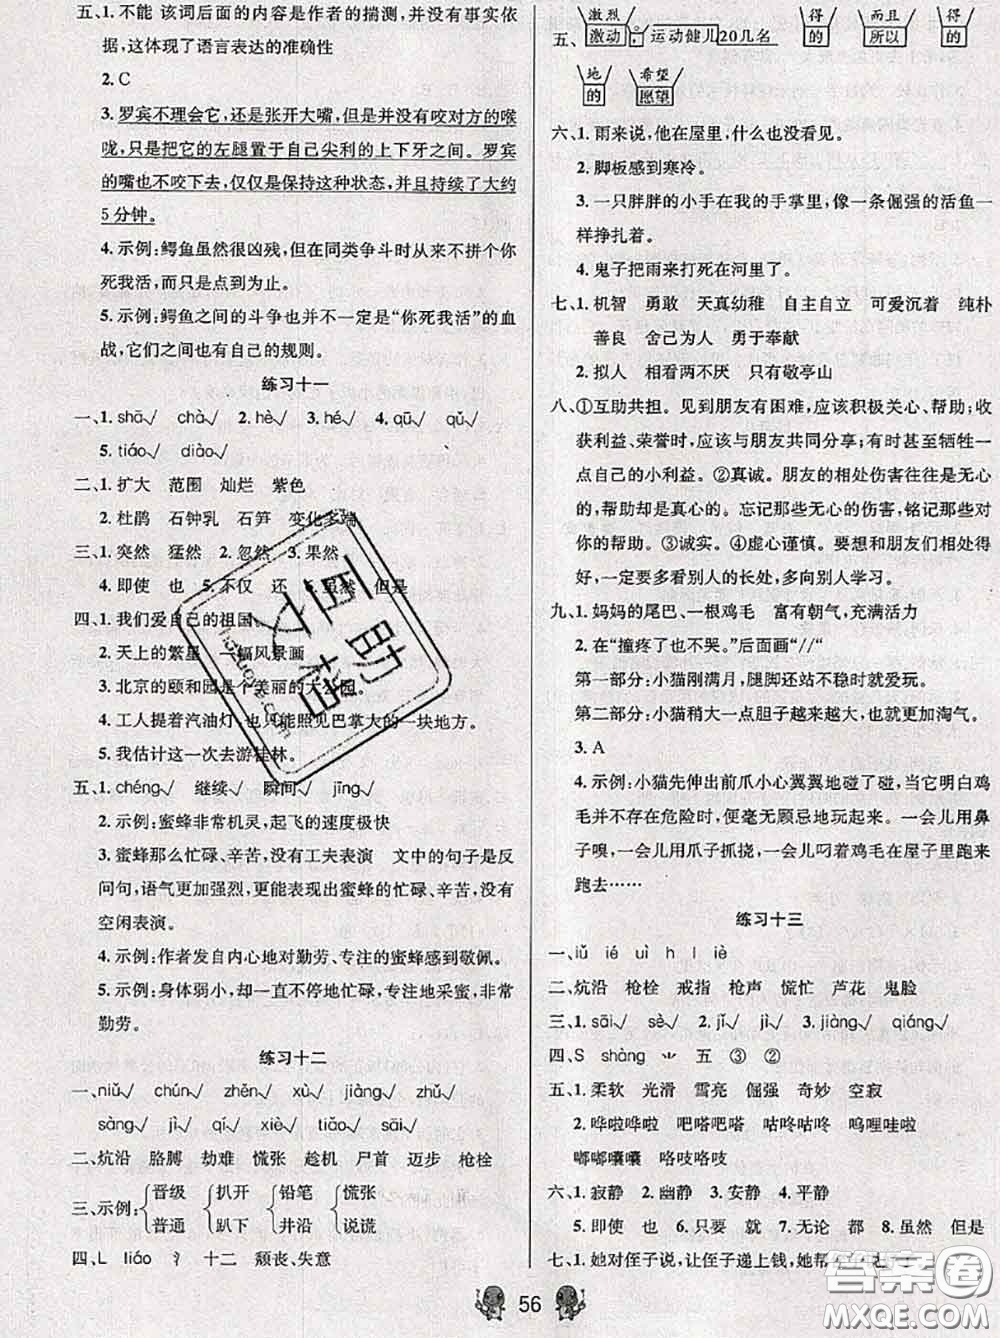 五、1. 不能 该词后面的内容是作者的揣测,并没有事实依
据,这体现了语言表达的准确性
2. C
3. 罗宾不理会它,还是张开大嘴,但是并没有咬对方的喉
咙,只是把它的左腿置于自己尖利的上下牙之间。罗宾
的嘴也不咬下去,仅仅是保持这种状态,并且持续了大约
5分钟。
4. 示例:鳄鱼虽然很凶残,但在同类争斗时从来不拼个你
死我活,而只是点到为止。
5. 示例:鳄鱼之间的斗争也并不一定是“你死我活”的血
战,它们之间也有自己的规则。
练习十一
一、1. shā√ chà√ 2. hè√ 3. hé√ 4. qū√ qǔ√
5. tiáo√ diào√
二、1. 扩大 范围 灿烂 紫色
2. 杜鹃 石钟乳 石笋 变化多端
三、1. 突然 猛然 2. 忽然 3. 果然
4. 即使 也 5. 不仅 还 6. 虽然 但是
四、1. 我们爱自己的祖国。
2. 天上的繁星 一幅风景画
3. 北京的颐和园是个美丽的大公园。
4. 工人提着汽油灯,也只能照见巴掌大的一块地方。
5. 我估计这一次去游桂林。
五、1. chéng√ 继续√ 瞬间√ jīng√
2. 示例:蜜蜂非常机灵,起飞的速度极快
3. 蜜蜂那么忙碌、辛苦,没有工夫表演 文中的句子是反
问句,语气更加强烈,更能表现出蜜蜂的忙碌、辛苦,没有
空闲表演。
4. 示例:作者发自内心地对勤劳、专注的蜜蜂感到敬佩。
5. 示例:身体弱小,却一直不停地忙碌,专注地采蜜,非常
勤劳。
练习十二
一、niǔ√ chún√ zhěn√ xù√ huāng√
sàng√ jì√ liáo√ tiáo√ sāi√
二、炕沿 胳膊 劫难 慌张 趁机 尸首 迈步 枪栓
三、示例: 晋级 扒开 铅笔 慌张
普通 趴下 井沿 说谎
四、L liáo 氵 十二 颓丧、失意
五、激烈 激动 运动健儿20几名 得 的 而且 所以 得 的
地 的 希望 愿望
六、1. 雨来说,他在屋里,什么也没看见。
2. 脚板感到寒冷。
3. 一只胖胖的小手在我的手掌里,像一条倔强的活鱼一
样挣扎着。
4. 鬼子把雨来打死在河里了。
七、1. 机智 勇敢 天真幼稚 自主自立 可爱沉着 纯朴
善良 舍己为人 勇于奉献
2. 拟人 相看两不厌 只有敬亭山
八、①互助共担。见到朋友有困难,应该积极关心、帮助;收
获利益、荣誉时,应该与朋友共同分享;有时应该牺牲一
点自己的小利益。②真诚。朋友的相处伤害往往是无心
的,帮助却是真心的。忘记那些无心的伤害,铭记那些对
你的帮助。③诚实。④虚心谨慎。要想和朋友们相处得
好,一定要多看别人的长处,多向别人学习。
九、1. 妈妈的尾巴、一根鸡毛 富有朝气,充满活力
2. 在“撞疼了也不哭。”后面画“//”
第一部分:小猫刚满月,腿脚还站不稳时就爱玩。
第二部分:小猫稍大一点胆子越来越大,也更加淘气。
3. A
4. 示例:小猫先伸出前爪小心翼翼地碰了碰,当它明白鸡
毛并不存在危险时,便毫无顾忌地玩耍起来。一会儿用鼻
子嗅,一会儿用爪子抓挠,一会儿叼着鸡毛在屋子里跑来
跑去……
练习十三
一、iǔ ié uì h l iè
二、炕沿 枪栓 戒指 枪声 慌忙 芦花 鬼脸
三、1. sāi√ sè√ 2. jǐ√ jì√ 3. jiàng√ qiáng√
四、S shàng 五 ③ ②
五、1. 柔软 光滑 雪亮 倔强 奇妙 空寂
2. 哗啦哗啦 吧嗒吧嗒 咕咚咕咚 呜哩哇啦
嘟嘟囔囔 咯吱咯吱
六、1. 寂静 2. 幽静 3. 安静 4. 平静
5. 即使 也 6. 只要 就 7. 无论 都 8. 虽然 但是
七、1. 她对侄子说,让侄子递上钱,她帮
56
百文助榜
答案圈
MXQE.COM